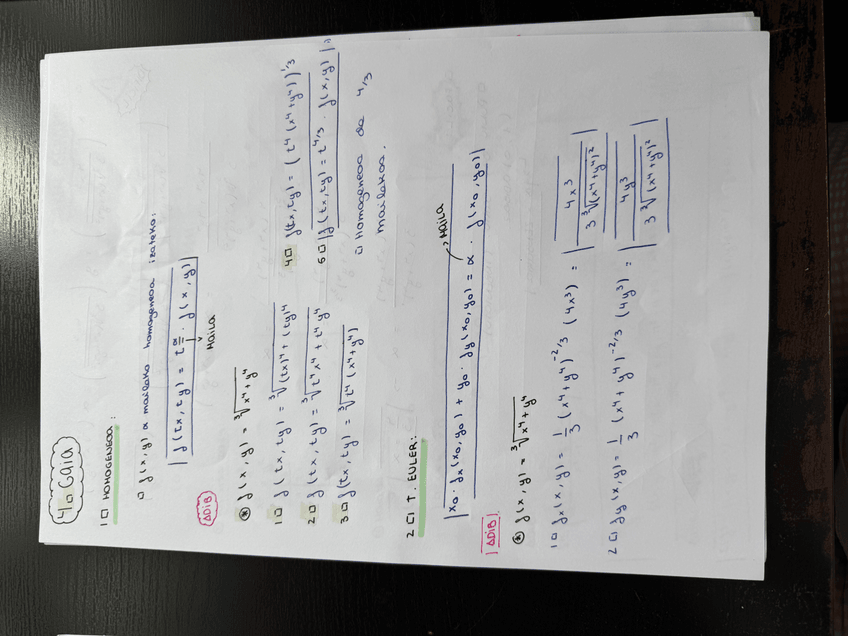 4. GAIA
1. HOMOGENEOA:
f(x,y) α mailako homogeneoa izateko:
f(tx,ty) = t^α · f(x,y)
MAILA
ADIB
* f(x,y) = ³√(x⁴+y⁴)
1. f(tx,ty) = ³√((tx)⁴+(ty)⁴)
2. f(tx,ty) = ³√(t⁴x⁴+t⁴y⁴)
3. f(tx,ty) = ³√(t⁴(x⁴+y⁴))
4. f(tx,ty) = (t⁴(x⁴+y⁴))^1/3
6. f(tx,ty) = t^4/3 · f(x,y)
Homogeneoa da 4/3
mailakoa.
2. T. EULER:
MAILA
x₀ · fx(x₀,y₀) + y₀ · fy(x₀,y₀) = α · f(x₀,y₀)
ADIB
* f(x,y) = ³√(x⁴+y⁴)
1. fx(x,y) = 1/3 (x⁴+y⁴)^-2/3 (4x³) = 4x³ / 3 ³√(x⁴+y⁴)²
2. fy(x,y) = 1/3 (x⁴+y⁴)^-2/3 (4y³) = 4y³ / 3 ³√(x⁴+y⁴)²